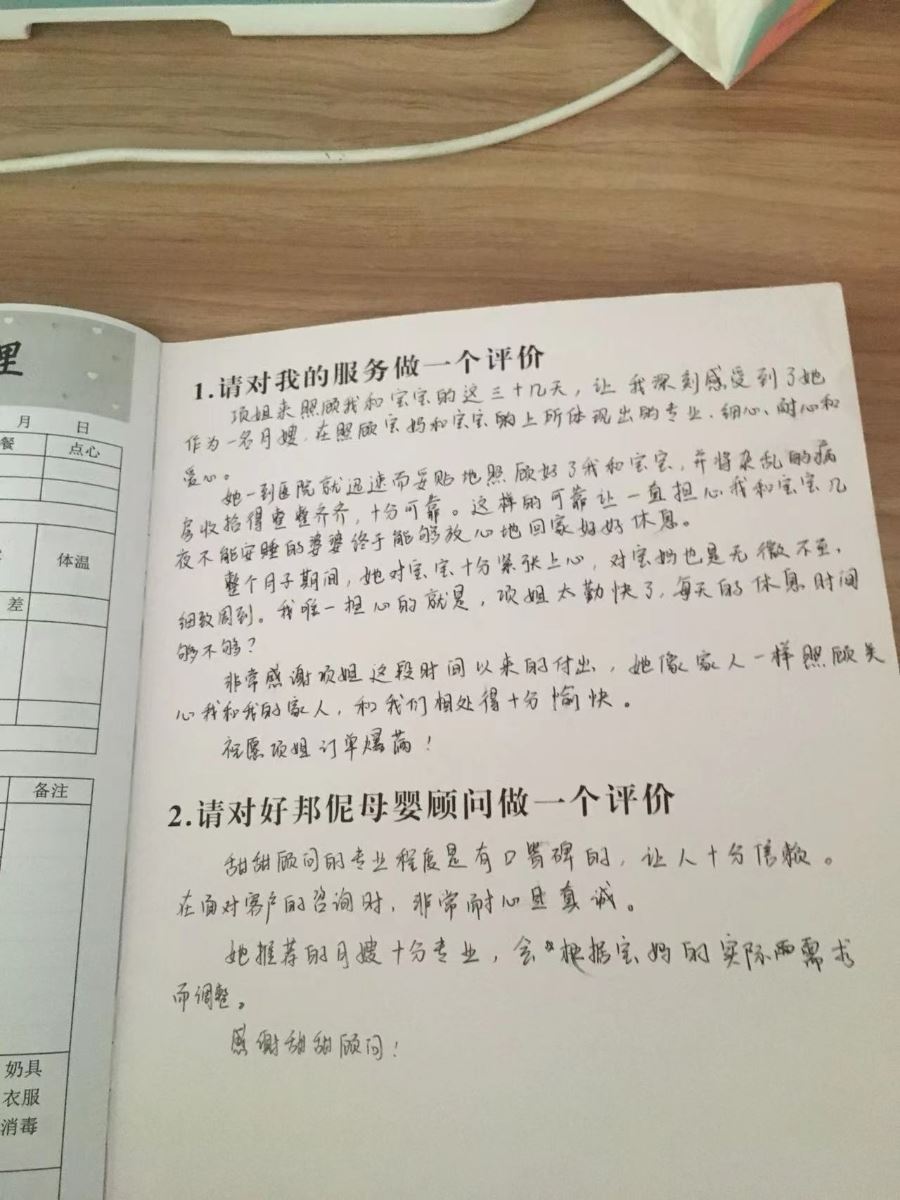 理
月 日
餐 点心
体温
差
备注
奶具
衣服
消毒
1.请对我的服务做一个评价
项姐来照顾我和宝宝的这三十几天，让我深刻感受到了她
作为一名月嫂，在照顾宝妈和宝宝的上所体现出的专业、细心、耐心和
爱心。
她一到医院就迅速而妥贴地照顾好了我和宝宝，并将杂乱的病
房收拾得整整齐齐，十分可靠。这样的可靠让一直担心我和宝宝几
夜不能安睡的婆婆终于能够放心地回家好好休息。
整个月子期间，她对宝宝十分紧张上心，对宝妈也是无微不至、
细致周到。我唯一担心的就是，项姐太勤快了，每天的休息时间
够不够？
非常感谢项姐这段时间以来的付出，她像家人一样照顾关
心我和我的家人，和我们相处得十分愉快。
祝愿项姐订单爆满！
2.请对好邦伲母婴顾问做一个评价
甜甜顾问的专业程度是有口皆碑的，让人十分信赖。
在面对客户的咨询时，非常耐心且真诚。
她推荐的月嫂十分专业，会根据宝妈的实际需求
而调整。
感谢甜甜顾问！